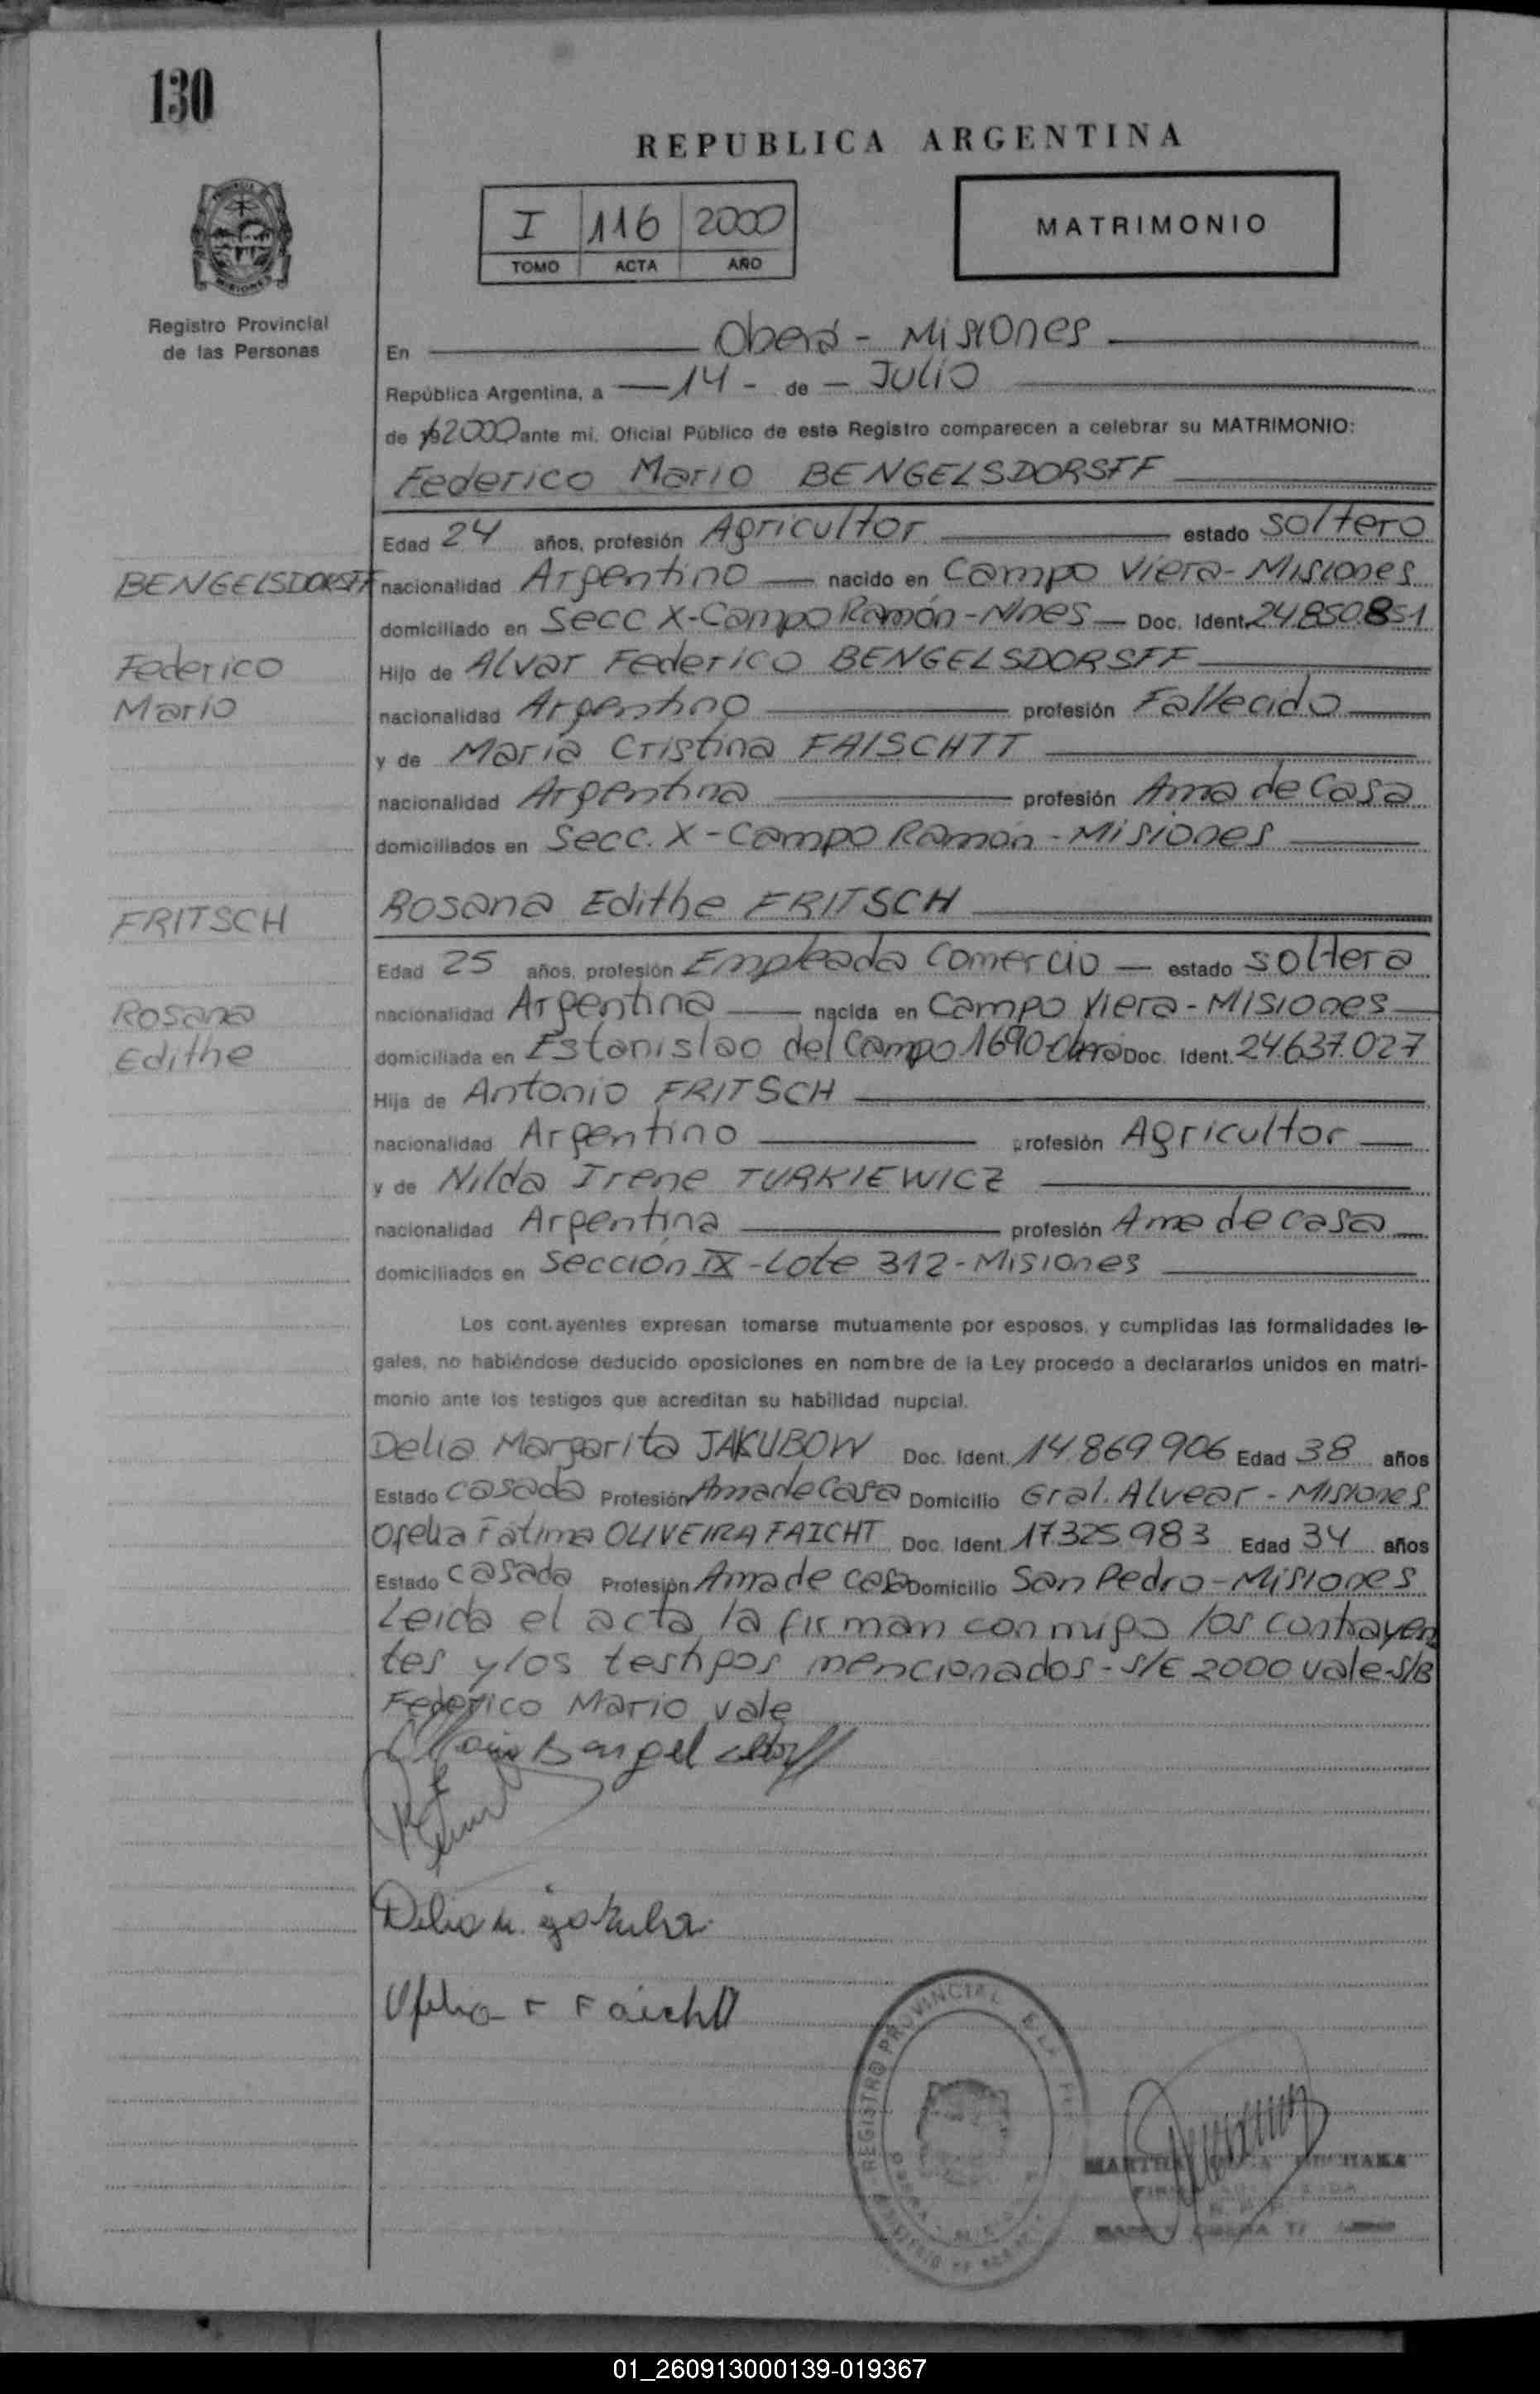 130
REPUBLICA ARGENTINA
I 116 2000
TOMO ACTA AÑO
MATRIMONIO
Registro Provincial
de las Personas
En Oberá - Misiones
República Argentina, a 14 - de - Julio
de 2000 ante mi, Oficial Público de este Registro comparecen a celebrar su MATRIMONIO:
Federico Mario BENGELSDORSFF
Edad 24 años, profesión Agricultor estado soltero
BENGELSDORSFF
nacionalidad Argentino nacido en Campo Viera - Misiones
domiciliado en Secc X - Campo Ramón - Mnes Doc. Ident. 24.850.851
Federico
Hijo de Alvar Federico BENGELSDORSFF
Mario
nacionalidad Argentino profesión Fallecido
y de María Cristina FAISCHTT
nacionalidad Argentina profesión Ama de Casa
domiciliados en Secc. X - Campo Ramón - Misiones
FRITSCH
Rosana Edithe FRITSCH
Edad 25 años, profesión Empleada Comercio estado soltera
Rosana
nacionalidad Argentina nacida en Campo Viera - Misiones
Edithe
domiciliada en Estanislao del Campo 1690 Doc. Ident. 24.637.027
Hija de Antonio FRITSCH
nacionalidad Argentino profesión Agricultor
y de Nilda Irene TURKIEWICZ
nacionalidad Argentina profesión Ama de casa
domiciliados en Sección IX - Lote 312 - Misiones
Los contrayentes expresan tomarse mutuamente por esposos, y cumplidas las formalidades le-
gales, no habiéndose deducido oposiciones en nombre de la Ley procedo a declararlos unidos en matri-
monio ante los testigos que acreditan su habilidad nupcial.
Delia Margarita JAKUBOW Doc. Ident. 14.869.906 Edad 38 años
Estado Casada Profesión Ama de Casa Domicilio Gral. Alvear - Misiones
Ofelia Fátima OLIVEIRA FAICHT Doc. Ident. 17.325.983 Edad 34 años
Estado Casada Profesión Ama de casa Domicilio San Pedro - Misiones
Leida el acta la firman conmigo los contrayen
tes y los testigos mencionados - S/E 2000 vale - S/B
Federico Mario vale
Delia M.
Ofelia F Faicht
REGISTRO PROVINCIAL
01_260913000139-019367